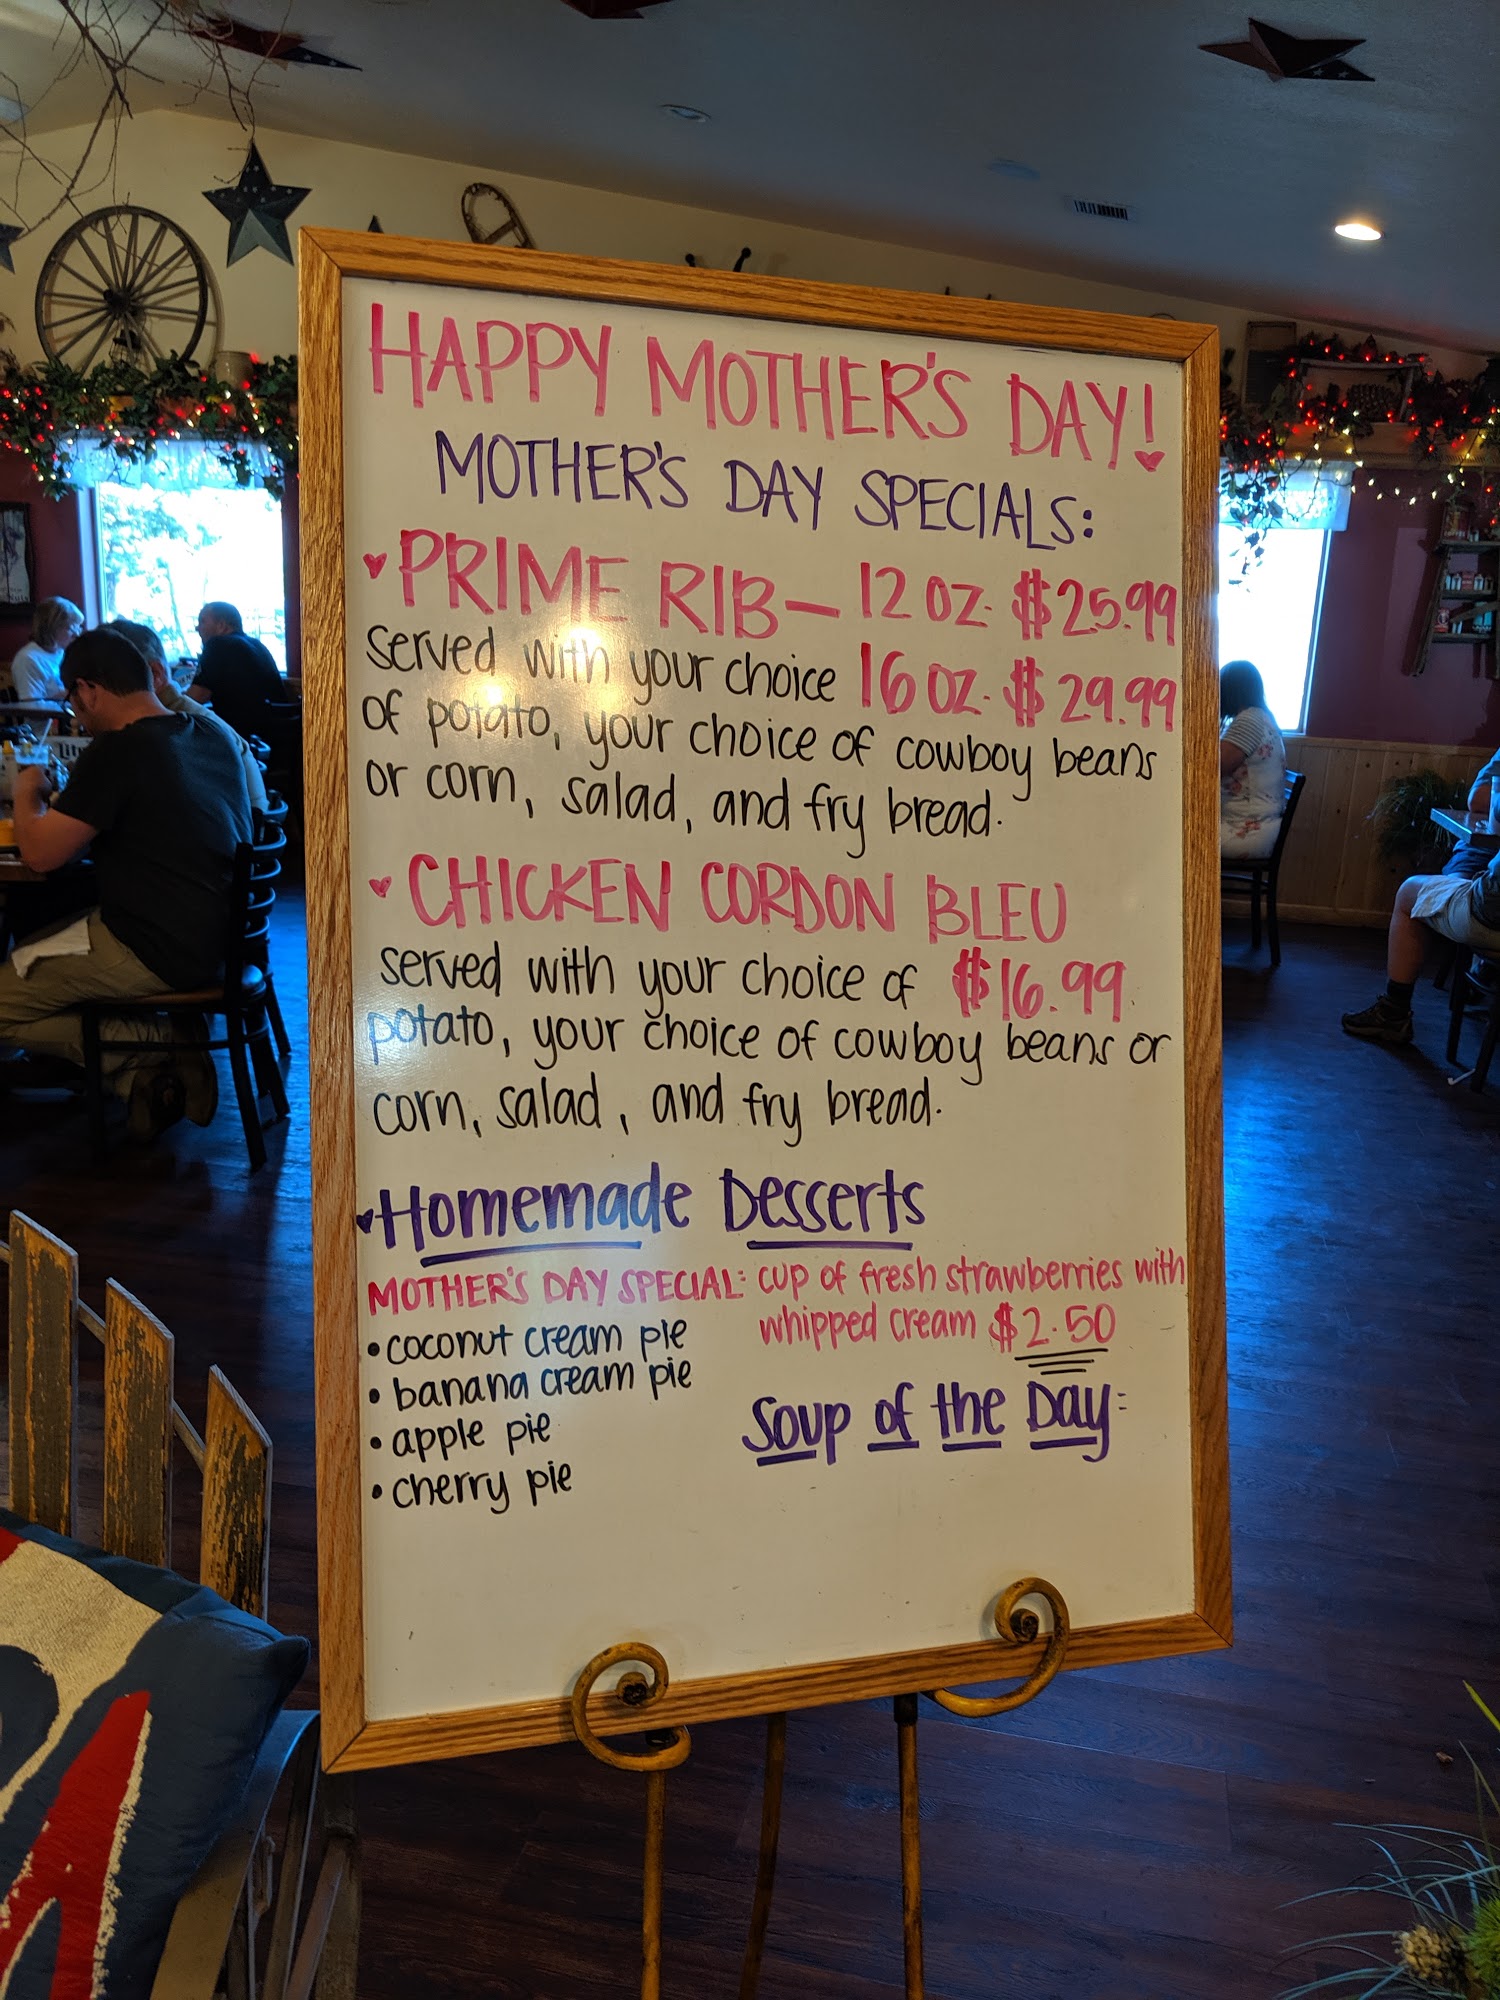 HAPPY MOTHER'S DAY!
MOTHER'S DAY SPECIALS:
PRIME RIB — 12 OZ. $25.99
served with your choice 16 OZ. $29.99
of potato, your choice of cowboy beans
or corn, salad, and fry bread.
CHICKEN CORDON BLEU
served with your choice of $16.99
potato, your choice of cowboy beans or
corn, salad, and fry bread.
Homemade Desserts
MOTHER'S DAY SPECIAL: cup of fresh strawberries with
whipped cream $2.50
• coconut cream pie
• banana cream pie
• apple pie
• cherry pie
Soup of the Day: